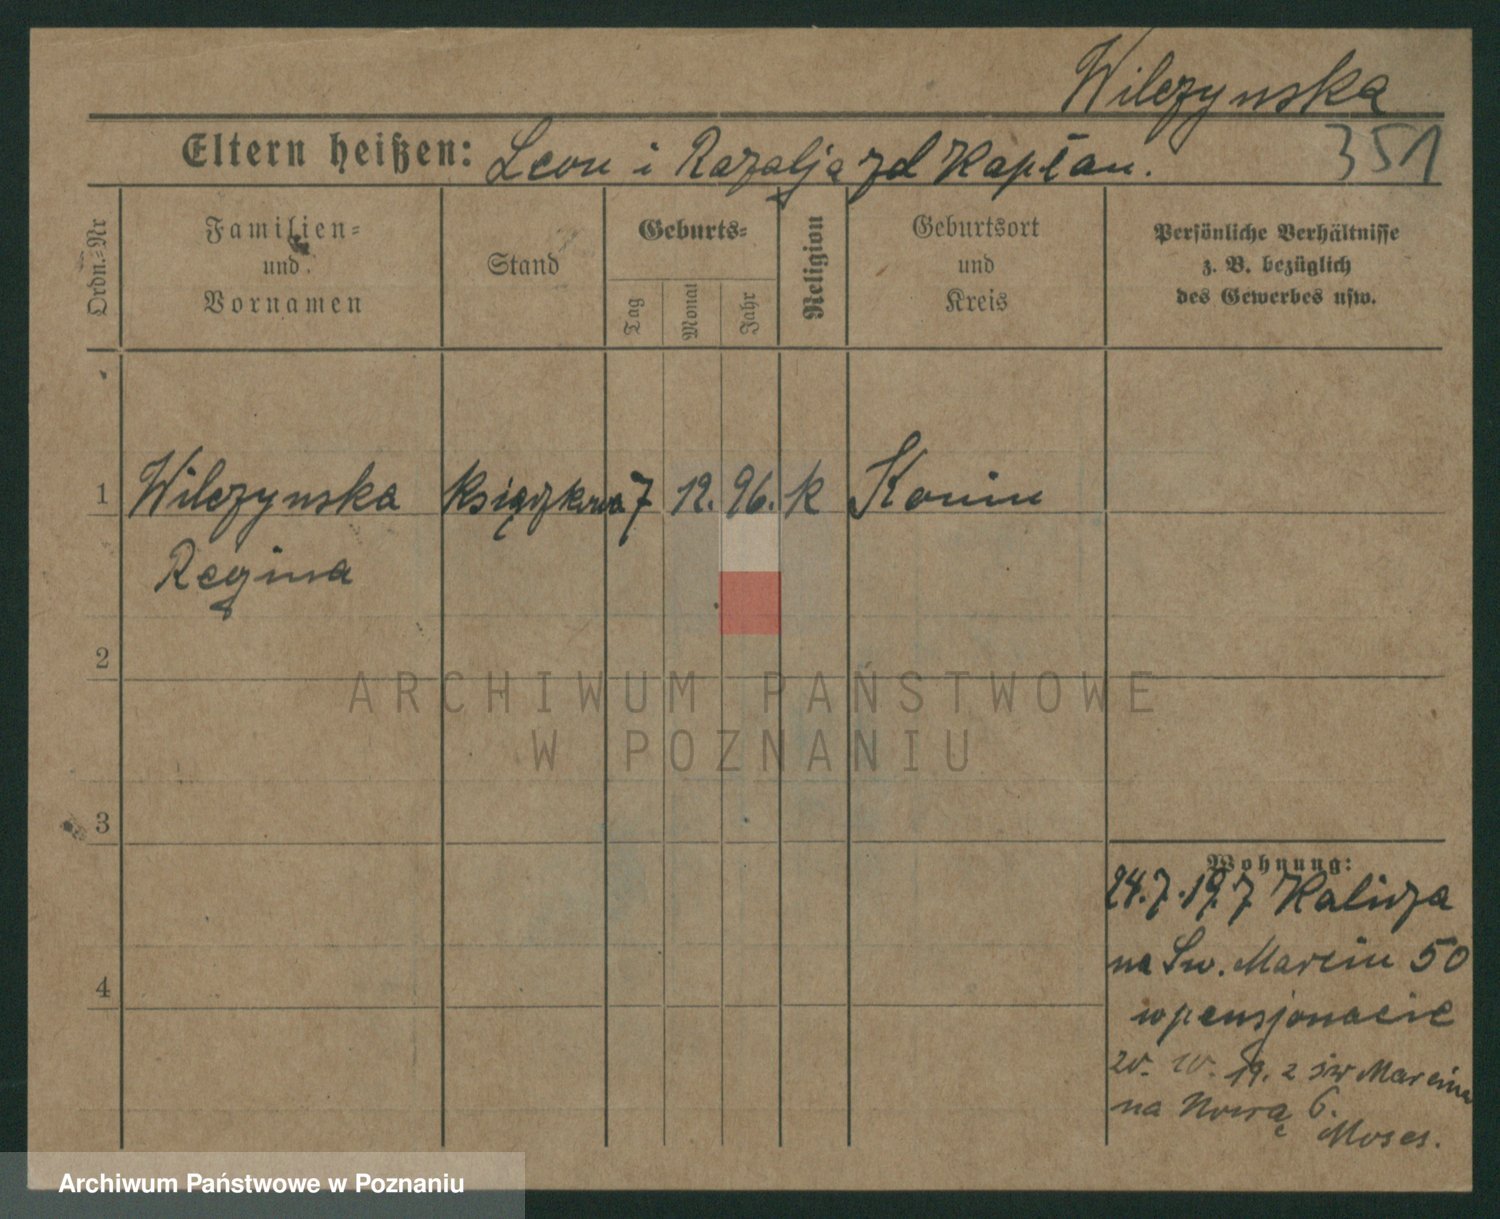 Wilczynska
351
Eltern heißen: Leon i Rozalja zd Kapłan.
Ordn.=Nr
Familien=
und
Vornamen
Stand
Geburts=
Tag
Monat
Jahr
Religion
Geburtsort
und
Kreis
Persönliche Verhältnisse
z. B. bezüglich
des Gewerbes usw.
1 Wilczynska książkowa 7 12. 96. k Konin
Regina
2
3
4
ARCHIWUM PAŃSTWOWE
W POZNANIU
Wohnung:
24.7.19. z Kalisza
na Św. Marcin 50
w pensjonacie
19. z św Marcina
na Nową 6.
Moses.
Archiwum Państwowe w Poznaniu